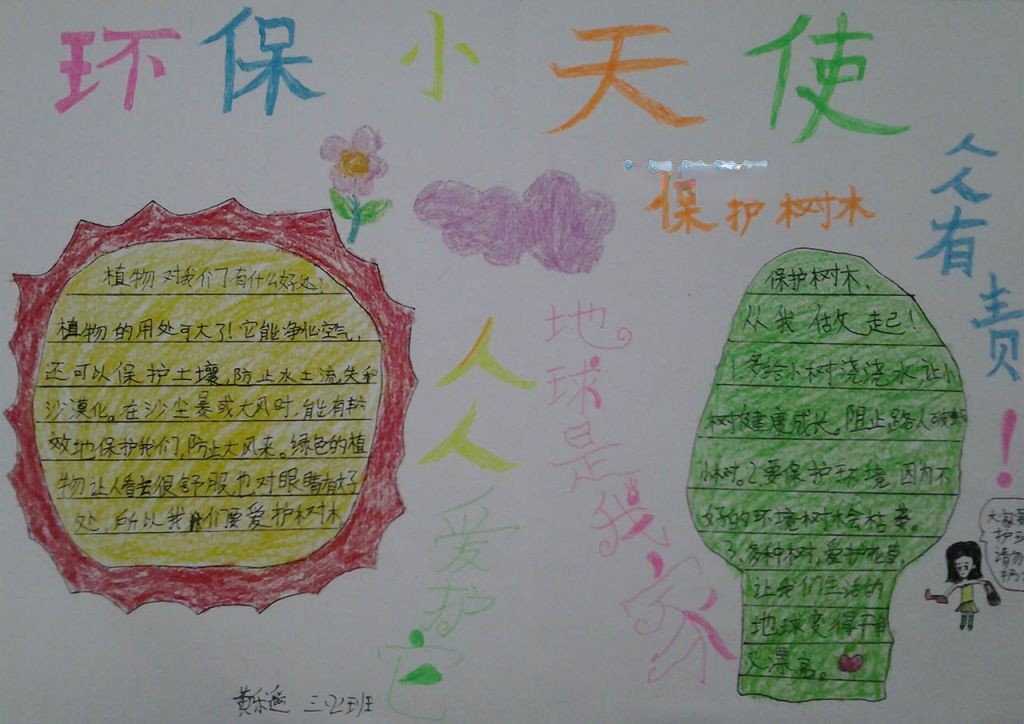 环保小天使
保护树木
人人有责！
植物对我们了有什么好处？
植物的用处可大了！它能净化空气，
还可以保护土壤，防止水土流失和
沙漠化。在沙尘暴或大风时，能有
效地保护我们，防止大风来。绿色的植
物让人看去很舒服也对眼睛有好
处，所以我们要爱护树木
人人爱护它
地球是我家
保护树木，
从我做起！
1.多给小树浇浇水，让小
树健康成长。阻止路人破
小树。2.要保护环境，因为不
好的环境树木会枯萎。
3.多种树，爱护花草，
让我们生活的
地球变得干
又漂亮。
大家要
护环
请勿
扔
黄乐遥 三、2班